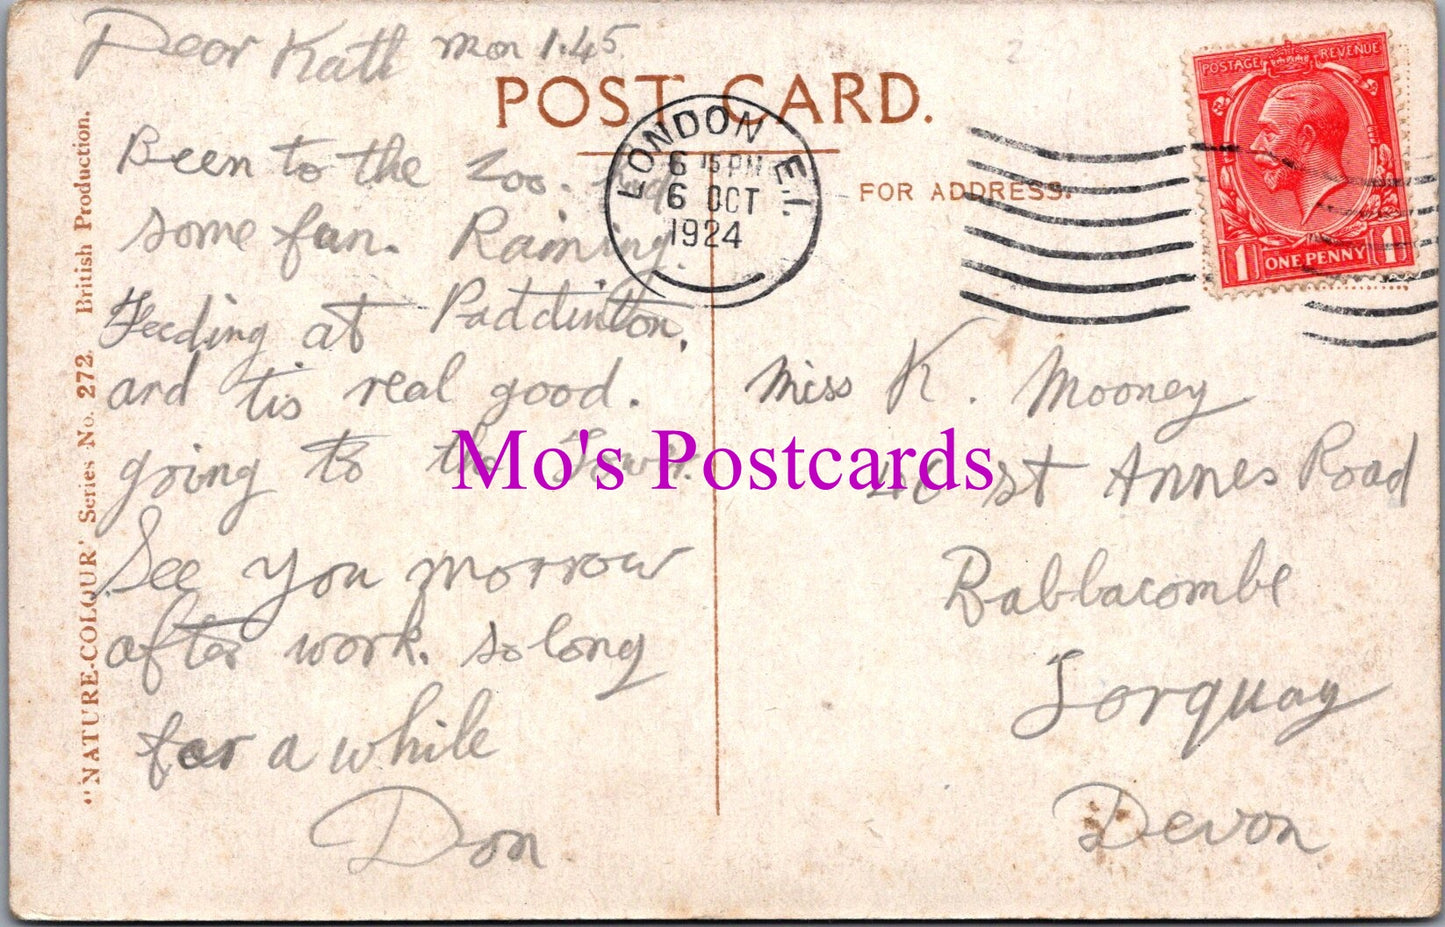 Dear Kath Mon 1.45
POST CARD.
FOR ADDRESS.
Been to the Zoo.
some fun. Raining.
Feeding at Paddinton.
and tis real good.
going to the
See you morrow
after work. so long
for a while
Don
"NATURE-COLOUR' Series No. 272. British Production.
LONDON E.1.
6 15 PM
6 OCT
1924
POSTAGE REVENUE
1 ONE PENNY 1
Miss K. Mooney
46 St Annes Road
Babbacombe
Torquay
Devon
Mo's Postcards